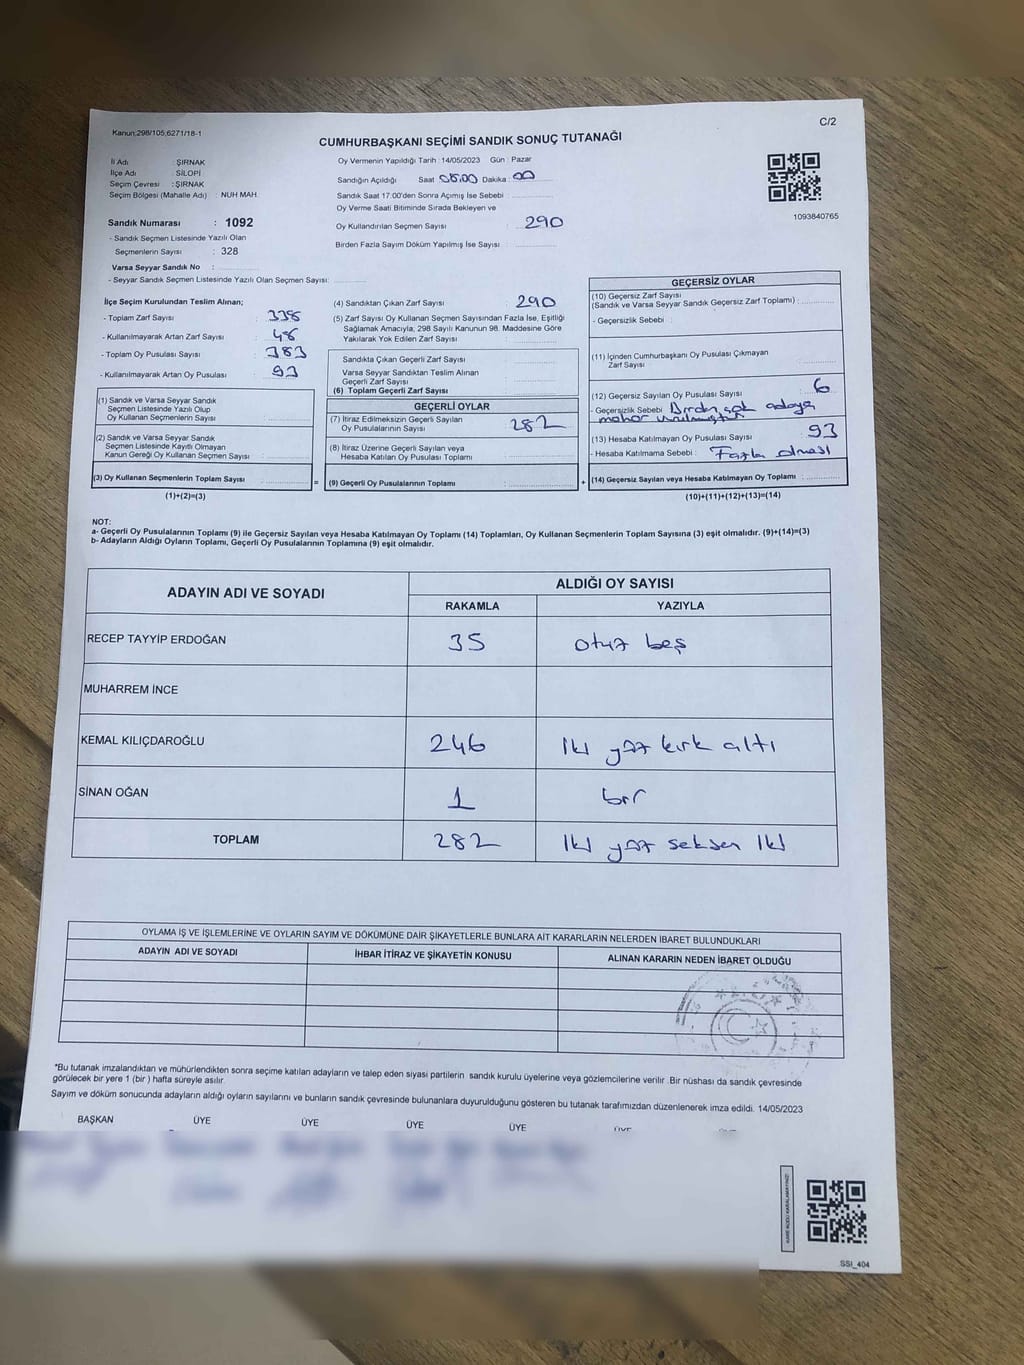 Kanun:298/105,6271/18-1
C/2
CUMHURBAŞKANI SEÇİMİ SANDIK SONUÇ TUTANAĞI
İl Adı : ŞIRNAK
İlçe Adı : SİLOPİ
Seçim Çevresi : ŞIRNAK
Seçim Bölgesi (Mahalle Adı) : NUH MAH.
Sandık Numarası : 1092
- Sandık Seçmen Listesinde Yazılı Olan
Seçmenlerin Sayısı : 328
Varsa Seyyar Sandık No :
- Seyyar Sandık Seçmen Listesinde Yazılı Olan Seçmen Sayısı:
Oy Vermenin Yapıldığı Tarih : 14/05/2023 Gün : Pazar
Sandığın Açıldığı Saat : 08.00 Dakika : 00
Sandık Saat 17.00'den Sonra Açımış İse Sebebi :
Oy Verme Saati Bitiminde Sırada Bekleyen ve
Oy Kullandırılan Seçmen Sayısı : 290
Birden Fazla Sayım Döküm Yapılmış İse Sayısı :
1093840765
İlçe Seçim Kurulundan Teslim Alınan;
- Toplam Zarf Sayısı : 338
- Kullanılmayarak Artan Zarf Sayısı : 48
- Toplam Oy Pusulası Sayısı : 383
- Kullanılmayarak Artan Oy Pusulası : 93
(1) Sandık ve Varsa Seyyar Sandık
Seçmen Listesinde Yazılı Olup
Oy Kullanan Seçmenlerin Sayısı :
(2) Sandık ve Varsa Seyyar Sandık
Seçmen Listesinde Kayıtlı Olmayan
Kanun Gereği Oy Kullanan Seçmen Sayısı :
(3) Oy Kullanan Seçmenlerin Toplam Sayısı :
(1)+(2)=(3)
(4) Sandıktan Çıkan Zarf Sayısı : 290
(5) Zarf Sayısı Oy Kullanan Seçmen Sayısından Fazla İse, Eşitliği
Sağlamak Amacıyla, 298 Sayılı Kanunun 98. Maddesine Göre
Yakılarak Yok Edilen Zarf Sayısı :
Sandıkta Çıkan Geçerli Zarf Sayısı :
Varsa Seyyar Sandıktan Teslim Alınan
Geçerli Zarf Sayısı :
(6) Toplam Geçerli Zarf Sayısı :
GEÇERLİ OYLAR
(7) İtiraz Edilmeksizin Geçerli Sayılan
Oy Pusulalarının Sayısı : 282
(8) İtiraz Üzerine Geçerli Sayılan veya
Hesaba Katılan Oy Pusulası Toplamı :
= (9) Geçerli Oy Pusulalarının Toplamı :
GEÇERSİZ OYLAR
(10) Geçersiz Zarf Sayısı
(Sandık ve Varsa Seyyar Sandık Geçersiz Zarf Toplamı) :
- Geçersizlik Sebebi :
(11) İçinden Cumhurbaşkanı Oy Pusulası Çıkmayan
Zarf Sayısı :
(12) Geçersiz Sayılan Oy Pusulası Sayısı : 6
- Geçersizlik Sebebi : Birden çok adaya
mühür vurulmuştur
(13) Hesaba Katılmayan Oy Pusulası Sayısı : 93
- Hesaba Katılmama Sebebi : Fazla olması
+ (14) Geçersiz Sayılan veya Hesaba Katılmayan Oy Toplamı :
(10)+(11)+(12)+(13)=(14)
NOT:
a- Geçerli Oy Pusulalarının Toplamı (9) ile Geçersiz Sayılan veya Hesaba Katılmayan Oy Toplamı (14) Toplamları, Oy Kullanan Seçmenlerin Toplam Sayısına (3) eşit olmalıdır. (9)+(14)=(3)
b- Adayların Aldığı Oyların Toplamı, Geçerli Oy Pusulalarının Toplamına (9) eşit olmalıdır.
ADAYIN ADI VE SOYADI
ALDIĞI OY SAYISI
RAKAMLA YAZIYLA
RECEP TAYYİP ERDOĞAN 35 otuz beş
MUHARREM İNCE
KEMAL KILIÇDAROĞLU 246 iki yüz kırk altı
SİNAN OĞAN 1 bir
TOPLAM 282 iki yüz seksen iki
OYLAMA İŞ VE İŞLEMLERİNE VE OYLARIN SAYIM VE DÖKÜMÜNE DAİR ŞİKAYETLERLE BUNLARA AİT KARARLARIN NELERDEN İBARET BULUNDUKLARI
ADAYIN ADI VE SOYADI İHBAR İTİRAZ VE ŞİKAYETİN KONUSU ALINAN KARARIN NEDEN İBARET OLDUĞU
*Bu tutanak imzalandıktan ve mühürlendikten sonra seçime katılan adayların ve talep eden siyasi partilerin sandık kurulu üyelerine veya gözlemcilerine verilir .Bir nüshası da sandık çevresinde
görülecek bir yere 1 (bir ) hafta süreyle asılır.
Sayım ve döküm sonucunda adayların aldığı oyların sayılarını ve bunların sandık çevresinde bulunanlara duyurulduğunu gösteren bu tutanak tarafımızdan düzenlenerek imza edildi. 14/05/2023
BAŞKAN ÜYE ÜYE ÜYE ÜYE ÜYE
KARE KODU KARALAMAYINIZ!
SSİ_404